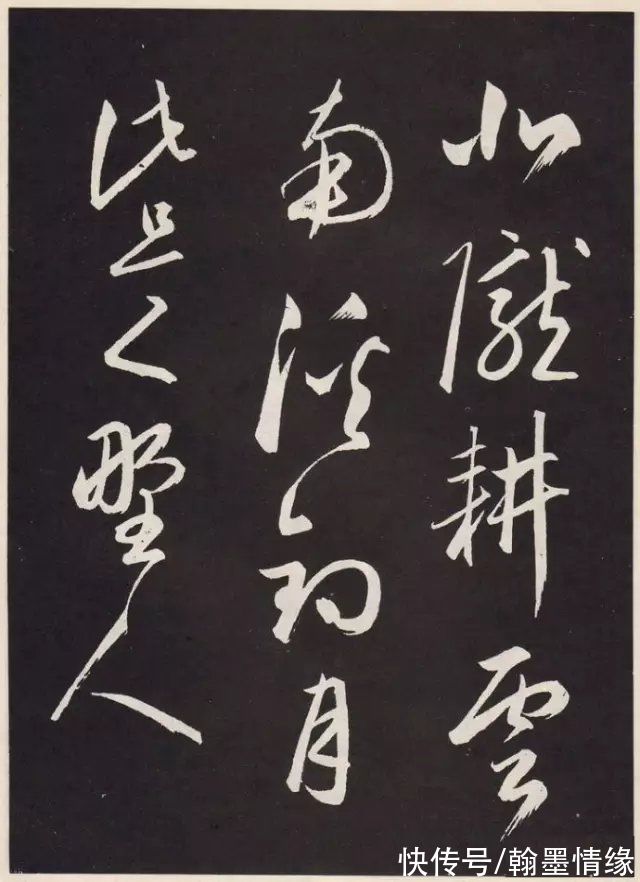 北隴耕雲
南溪釣月
此是野人
快传号/翰墨情缘